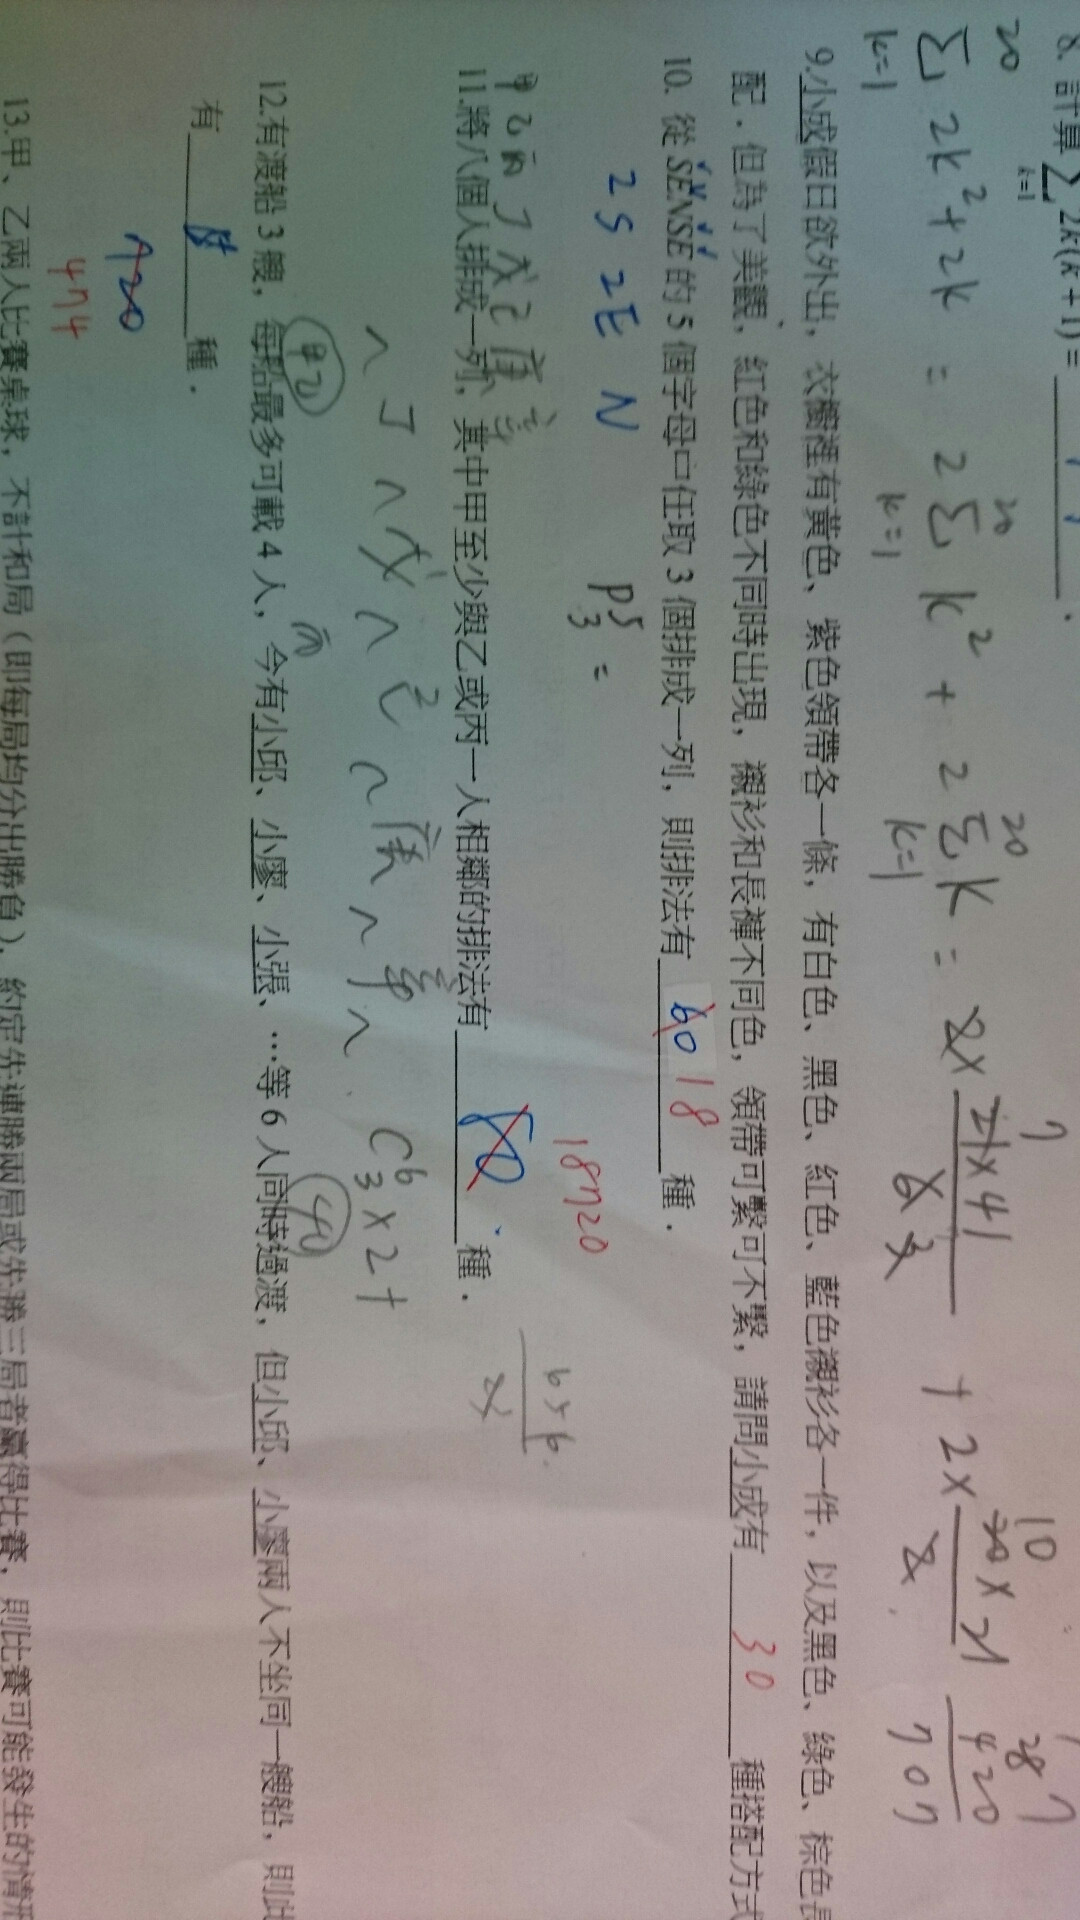 8. 計算 ∑ k=1 2k(k+1) = ________ .
20 ∑ k=1 2k²+2k = 2 20 ∑ k=1 k² + 2 20 ∑ k=1 k = 2× 21×41 6 3 7 + 2× 20×21 2 10
28 7
420
707
9.小成假日欲外出，衣櫥裡有黃色、紫色領帶各一條，有白色、黑色、紅色、藍色襯衫各一件，以及黑色、綠色、棕色長
配．但為了美觀，紅色和綠色不同時出現，襯衫和長褲不同色，領帶可繫可不繫，請問小成有 30 種搭配方式
10. 從 SENSE 的 5 個字母中任取 3 個排成一列，則排法有 60 18 種．
2S 2E N
P⁵₃ =
18720
甲乙丙丁戊己庚辛
11.將八個人排成一列，其中甲至少與乙或丙一人相鄰的排法有 種．
^ 丁 ^ 戊 ^ 己 ^ 庚 ^ 辛 ^ C⁶₃×2+
甲乙 丙
12.有渡船 3 艘，每船最多可載 4 人，今有小邱、小廖、小張、…等 6 人同時過渡，但小邱、小廖兩人不坐同一艘船，則此
有 種．
720
474
13.甲、乙兩人比賽桌球，不計和局（即每局均分出勝負），約定先連勝兩局或先勝三局者贏得比賽，則比賽可能發生的情形